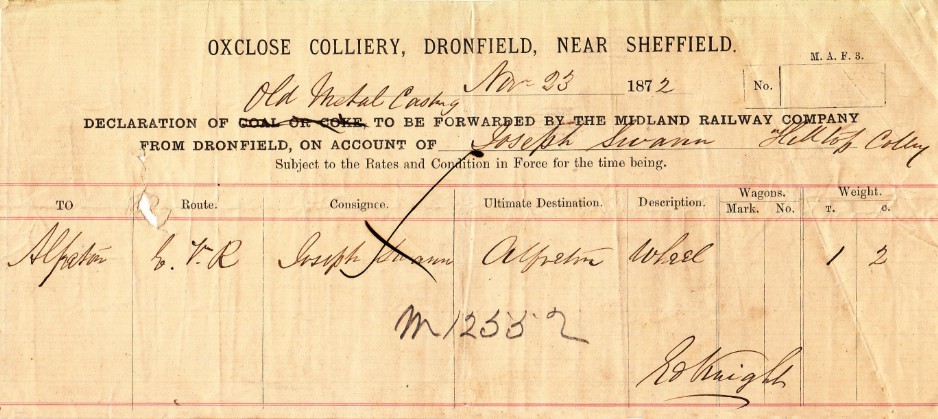 OXCLOSE COLLIERY, DRONFIELD, NEAR SHEFFIELD.
M. A. F. 3.
Nov 23 1872
No.
Old Metal Casting
DECLARATION OF COAL OR COKE TO BE FORWARDED BY THE MIDLAND RAILWAY COMPANY
FROM DRONFIELD, ON ACCOUNT OF Joseph Swann Hilltop Colley
Subject to the Rates and Condition in Force for the time being.
TO Route. Consigne. Ultimate Destination. Description. Wagons. Weight.
Mark. No. T. C.
Alfreton E. V. R Joseph Swann Alfreton Wheel 1 2
M12552
Ed Knight